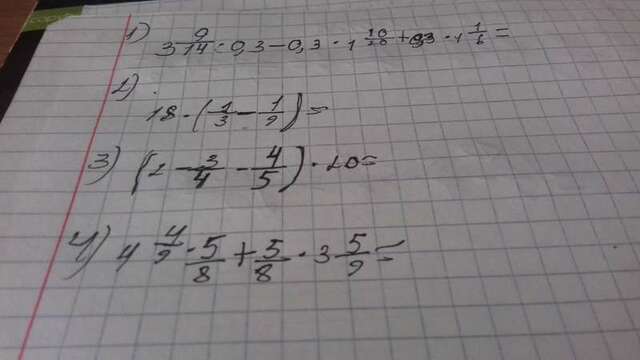 1) 3 9/14 · 0,3 − 0,3 · 1 10/28 + 0,3 · 1 1/6 =
2) 18 · (1/3 − 1/9) =
3) (2 − 3/4 − 4/5) · 20 =
4) 4 4/9 · 5/8 + 5/8 · 3 5/9 =